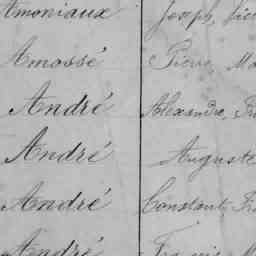 Amoniaux Joseph,
Amossé Pierre,
André Alexandre,
André Auguste
André Constant,
André